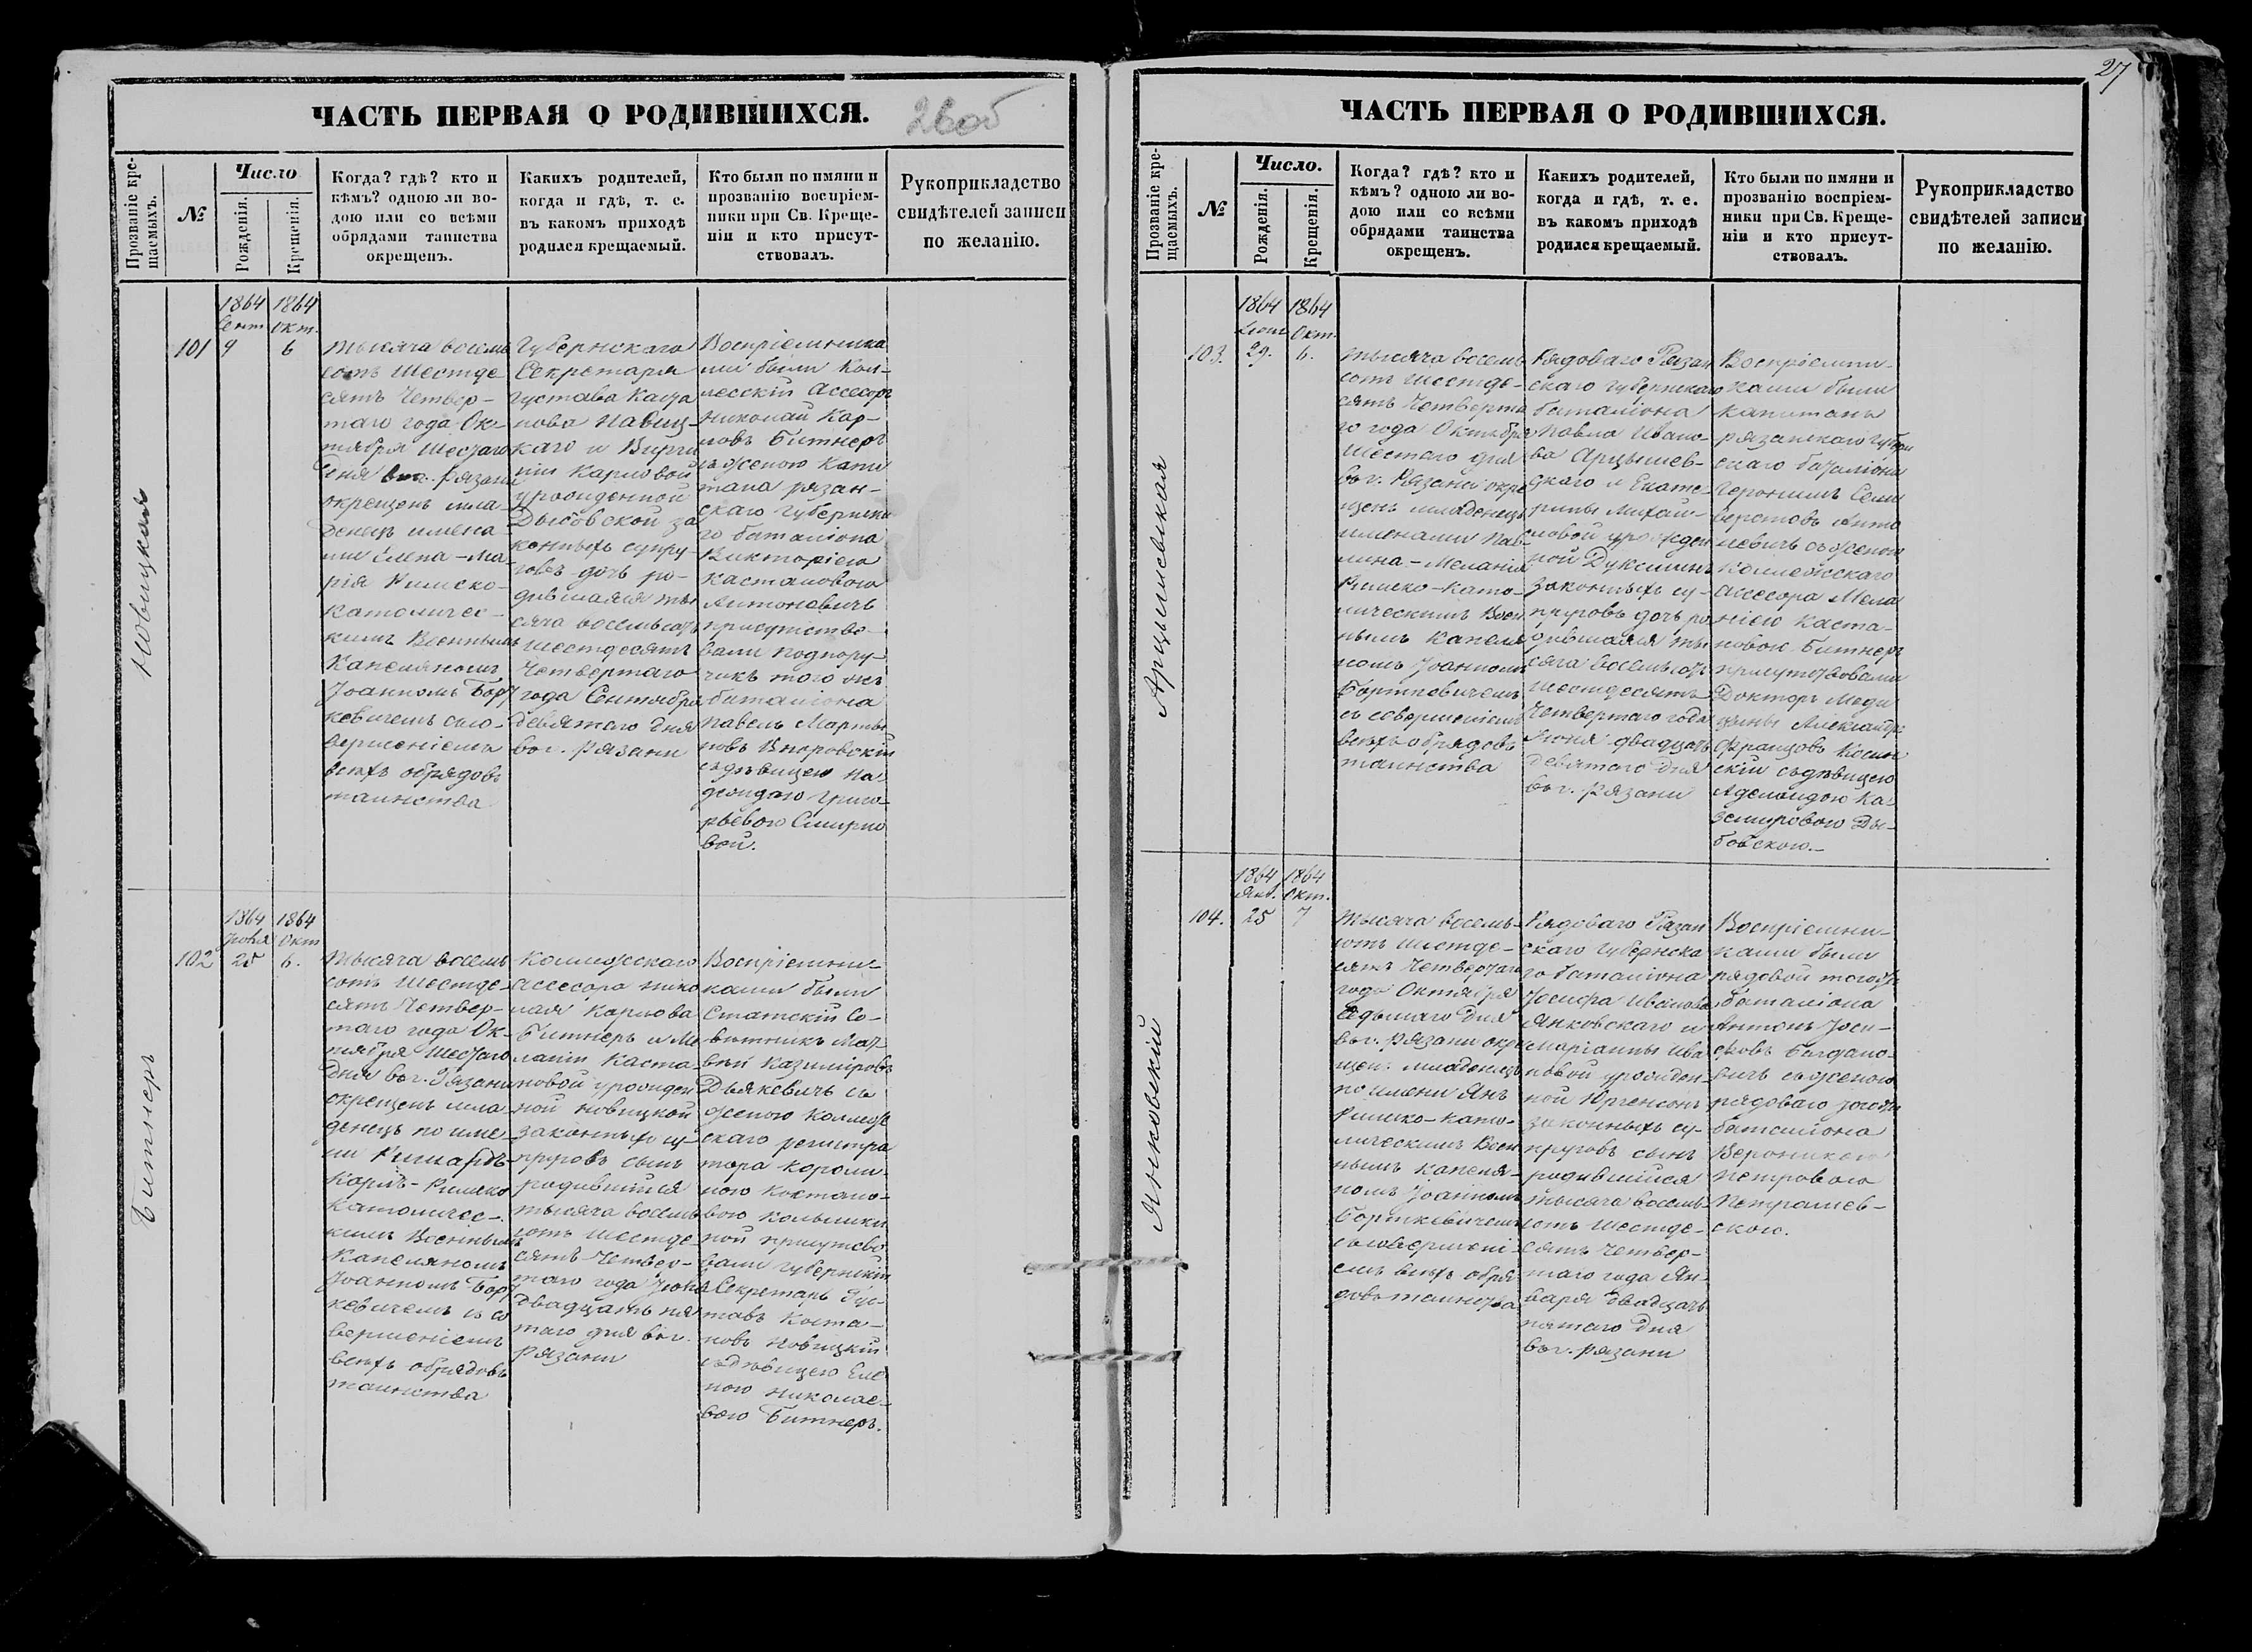 ЧАСТЬ ПЕРВАЯ О РОДИВШИХСЯ.
26об
Прозваніе кре-
щаемыхъ.
№
Число
Рожденія.
Крещенія.
Когда? гдѣ? кто и
кѣмъ? одною ли во-
дою или со всѣми
обрядами таинства
окрещенъ.
Какихъ родителей,
когда и гдѣ, т. е.
въ какомъ приходѣ
родился крещаемый.
Кто были по имяни и
прозванію воспріем-
ники при Св. Креще-
ніи и кто присут-
ствовалъ.
Рукоприкладство
свидѣтелей записи
по желанію.
Новицкая
101
1864
Сент
9
1864
Окт.
6
Тысяча восемь
сотъ шестде
сятъ четвер-
таго года Ок-
тября шестаго
дня въ г. Рязани
окрещенъ мла
денецъ имена
ми Елена-Ма-
рія Римско-
католичес-
кимъ Военнымъ
Капеляномъ
Іоанномъ Борт
кевичемъ съ со-
вершеніемъ
всѣхъ обрядовъ
таинства
Губернскаго
Секретаря
Густава Каэта
нова Новиц-
каго и Вирги
ніи Карловой
урожденной
Дыбовской за
конныхъ супру-
говъ дочь ро-
дившаяся ты
сяча восемьсотъ
шестдесятъ
четвертаго
года Сентября
девятаго дня
въ г. Рязани
Воспріемника
ми были Кол-
лесскій Ассесоръ
Николай Кар-
ловъ Битнеръ
съ женою Капи
тана рязан-
скаго губернска
го баталіона
Викторіею
Каетановою
Антоновичъ
присутство-
вали подпору-
чикъ того же
баталіона
Павелъ Марты
новъ
съ дѣвицею На
деждою Григо-
рьевою Смирно
вой.
Битнеръ
102
1864
Іюня
25
1864
Окт
6.
Тысяча восемь
сотъ шестде-
сятъ четвер-
таго года Ок-
тября шестаго
дня въ г. Рязани
окрещенъ мла
денецъ по име-
ни Ришардъ-
Карлъ-Римско
Католичес-
кимъ Военнымъ
Капеляномъ
Іоанномъ Борт
кевичемъ съ со
вершеніемъ
всѣхъ обрядовъ
таинства
Коллежскаго
Ассесора Нико
лая Карлова
Битнеръ и Ме
ланіи Каэта-
новой урожден
ной Новицкой
законныхъ су-
пруговъ сынъ
родившійся
тысяча восемь
сотъ шестде-
сятъ четвер-
таго года Іюня
двадцать пя
таго дня въ г.
Рязани
Воспріемни-
ками были
Статскій Со-
вѣтникъ Мат-
вѣй Казиміровъ
Дьякевичъ съ
женою Коллеж
скаго регистра
тора Кароли
ною Каэтано-
вою
ной присутство
вали губернскій
Секретарь Гус-
тавъ Каэта-
новъ Новицкій
съ дѣвицею Еле
ною Николае-
вою Битнеръ.
27
ЧАСТЬ ПЕРВАЯ О РОДИВШИХСЯ.
Прозваніе кре-
щаемыхъ.
№
Число.
Рожденія.
Крещенія.
Когда? гдѣ? кто и
кѣмъ? одною ли во-
дою или со всѣми
обрядами таинства
окрещенъ.
Какихъ родителей,
когда и гдѣ, т. е.
въ какомъ приходѣ
родился крещаемый.
Кто были по имяни и
прозванію воспріем-
ники при Св. Креще-
ніи и кто присут-
ствовалъ.
Рукоприкладство
свидѣтелей записи
по желанію.
Арцышевская
103.
1864
29.
1864
Окт.
6.
Тысяча восемь
сотъ шестде-
сятъ четверта
го года Октября
шестаго дня
въ г. Рязани окре
щенъ младенецъ
именами Пав-
лина-Меланія
Римско-като-
лическимъ Воен
нымъ Капеля
номъ Іоанномъ
Борткевичемъ
съ совершеніемъ
всѣхъ обрядовъ
таинства
Рядоваго Рязан
скаго губернскаго
баталіона
Павла Ивано-
ва Арцышев-
скаго и Екате-
рины Михай-
ловой урожден
ной
законныхъ су-
пруговъ дочь ро
дившаяся ты
сяча восемьсотъ
шестдесятъ
четвертаго года
Іюня двадцать
девятаго дня
въ г. Рязани
Воспріемни-
ками были
Капитанъ
рязанскаго губерн
скаго баталіона
Іеронимъ Сели
верстовъ Анто
новичъ съ женою
Коллежскаго
Ассесора Мела
ніею Каэта-
новою Битнеръ
присутствовали
Докторъ Меди
цины Александръ
Францовъ Косин
скій съ дѣвицею
Аделаидою Ка-
земировою Ды-
бовскою.-
Янковскій
104.
1864
Янв.
25
1864
Окт.
7
Тысяча восемь-
сотъ шестде-
сятъ четвертаго
года Октября
седьмаго дня
въ г. Рязани окре
щенъ младенецъ
по имени Янъ
Римско-като-
лическимъ Воен
нымъ Капеля-
номъ Іоанномъ
Борткевичемъ
съ совершені-
емъ всѣхъ обря
довъ таинства
Рядоваго Рязан
скаго губернска
го баталіона
Іосифа Иванова
Янковскаго и
Маріанны Ива
новой урожден-
ной Юргенсонъ
законныхъ су-
пруговъ сынъ
родившійся
тысяча восемь-
сотъ шестде-
сятъ четвер-
таго года Ян-
варя двадцать
пятаго дня
въ г. Рязани
Воспріемни-
ками были
рядовой того же
баталіона
Антонъ Іоси-
фовъ Богдано-
вичъ съ женою
рядоваго того же
баталіона
Вероникою
Петровою
Петрашев-
скою.